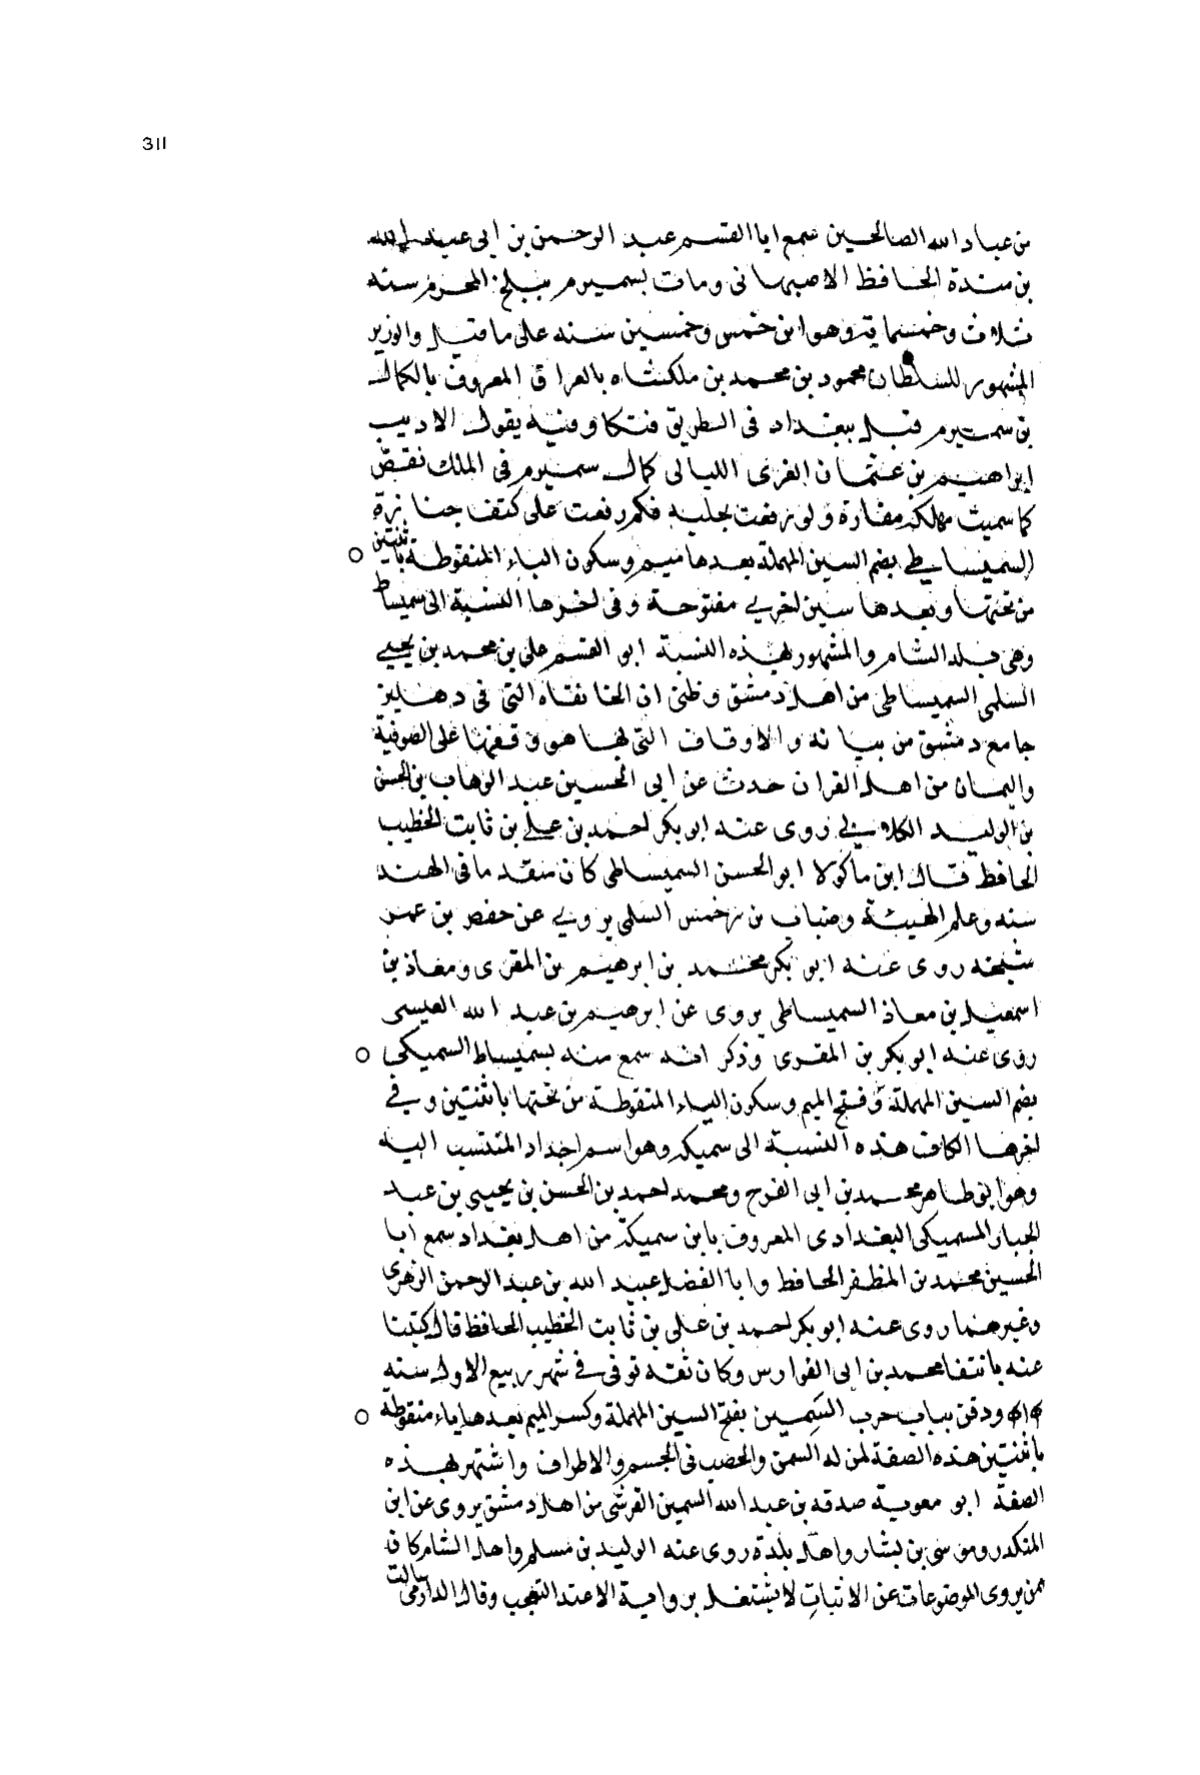 311
من عباد الله الصالحين سمع ابا القسم عبد الرحمن بن ابى عبد الله
بن مندة الحافظ الاصبهانى ومات بسميرم المحرم سنه
ثلاث وخمسماية وهو ابن خمس وخمسين سنه على ما قيل والوزير
المشهور للسلطان محمود بن محمد بن ملكشاه بالعراق المعروف بالكمال
بن سميرم قتل ببغداد فى الطريق فتكا وفيه يقول الاديب
ابراهيم بن عثمان الغزى الليالى كمال سميرم فى الملك نقص
كما سميت مهلكة مفازة ولو رفعت فكم رفعت على كتف جنازة
السميساطى بضم السين المهملة بعدها ميم وسكون الياء المنقوطة باثنتين
من تحتها وبعدها سين اخرى مفتوحة وفى اخرها النسبة الى سميساط
وهى بلد الشام والمشهور بهذه النسبة ابو القسم على بن محمد بن يحيى
السلمى السميساطى من اهل دمشق وظنى ان الخانقاه التى فى دهليز
جامع دمشق من بيانه والاوقاف التى بها هو وقفها على الصوفية
من اهل القران حدث عن ابى الحسين عبد الوهاب بن الحسن
بن الوليد الكلابى روى عنه ابو بكر احمد بن على بن ثابت الخطيب
الحافظ قال ابن ماكولا ابو الحسن السميساطى كان متقدما فى الهند
سنه وعلم الهيئة السلمى يروى عن حفص بن عمر
شيخه روى عنه ابو بكر محمد بن ابرهيم بن المقرى ومعاذ بن
اسمعيل بن معاذ السميساطى يروى عن ابرهيم بن عبد الله العبسى
روى عنه ابو بكر بن المقرى وذكر انه سمع منه بسميساط السميكى
بضم السين المهملة وفتح الميم وسكون الياء المنقوطة من تحتها باثنتين وفى
اخرها الكاف هذه النسبة الى سميكه وهو اسم اجداد المنتسب اليه
وهو ابو طاهر محمد بن ابى الفرج ومحمد احمد بن الحسن بن يحيى بن عبد
الجبار السميكى البغدادى المعروف بابن سميكة من اهل بغداد سمع ابا
الحسين محمد بن المظفر الحافظ وابا الفضل عبيد الله بن عبد الرحمن الزهرى
وغيرهما روى عنه ابو بكر احمد بن على بن ثابت الخطيب الحافظ قال كتبنا
عنه بانتقا محمد بن ابى الفوارس وكان ثقه توفى فى شهر ربيع الاول سنه
ودفن بباب حرب السمين بفتح السين المهملة وكسر الميم بعدها ياء منقوطة
باثنتين هذه الصفة لمن له السمن والخصب فى الجسم والاطراف واشتهر بهذه
الصفة ابو معوية صدقه بن عبد الله السمين القرشى من اهل دمشق يروى عن ابن
المنكدر وموسى بن يسار واهل بلدة روى عنه الوليد بن مسلم واهل الشام كان
ممن يروى الموضوعات عن الاثبات لا يشتغل برواية الا عند التعجب وقال الدارمى سالت